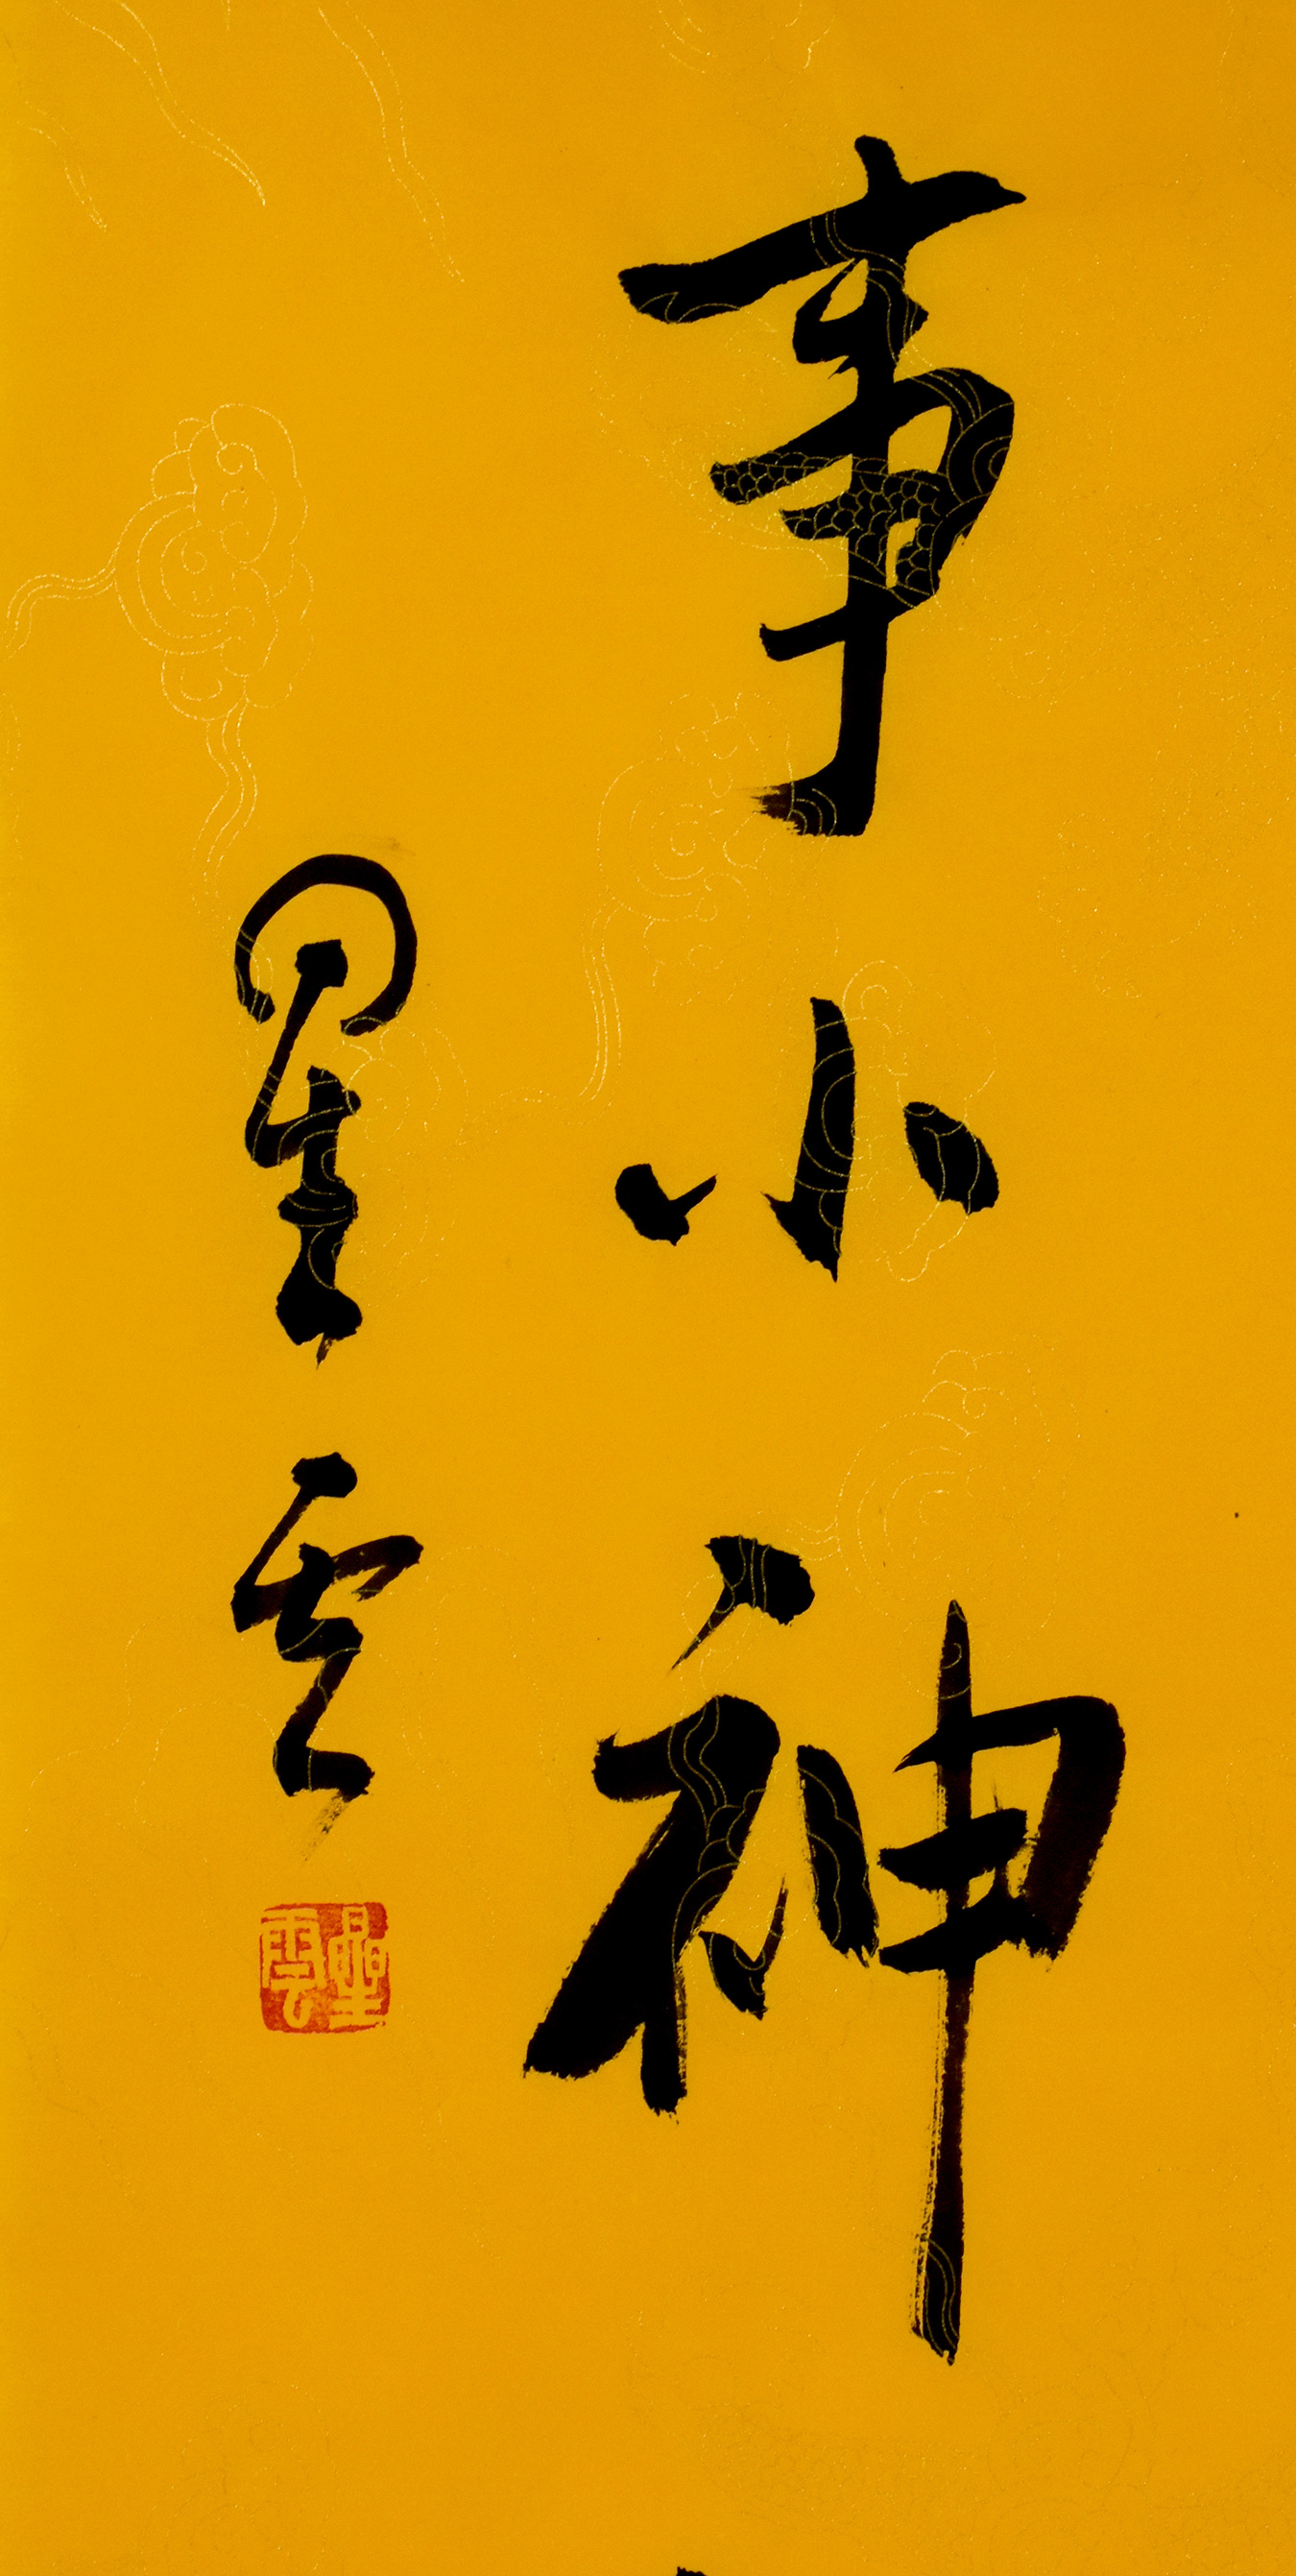 事小神
星云
星雲